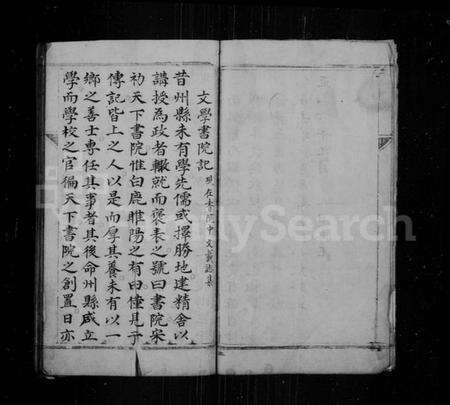 文學書院記
昔州縣未有學先儒或擇勝地建精舍以
講授為政者輙就而褒表之號曰書院宋
初天下書院惟白鹿睢陽之有田僅見于
傳記皆上之人以是而厚其養未有以一
鄉之善士專任其事者其後命州縣咸立
學而學校之官徧天下書院之創置日亦
FamilySearch